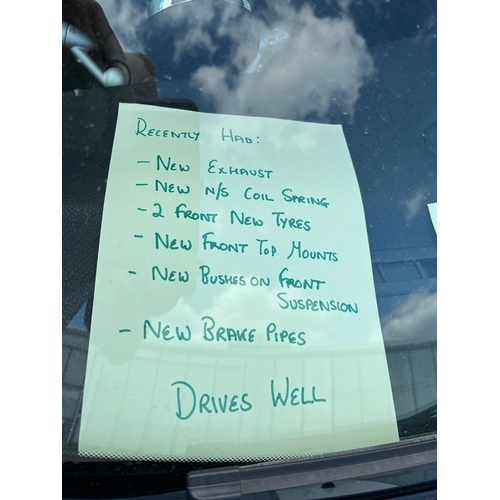 Recently Had:
- New Exhaust
- New N/S Coil Spring
- 2 Front New Tyres
- New Front Top Mounts
- New Bushes on Front
Suspension
- New Brake Pipes
Drives Well